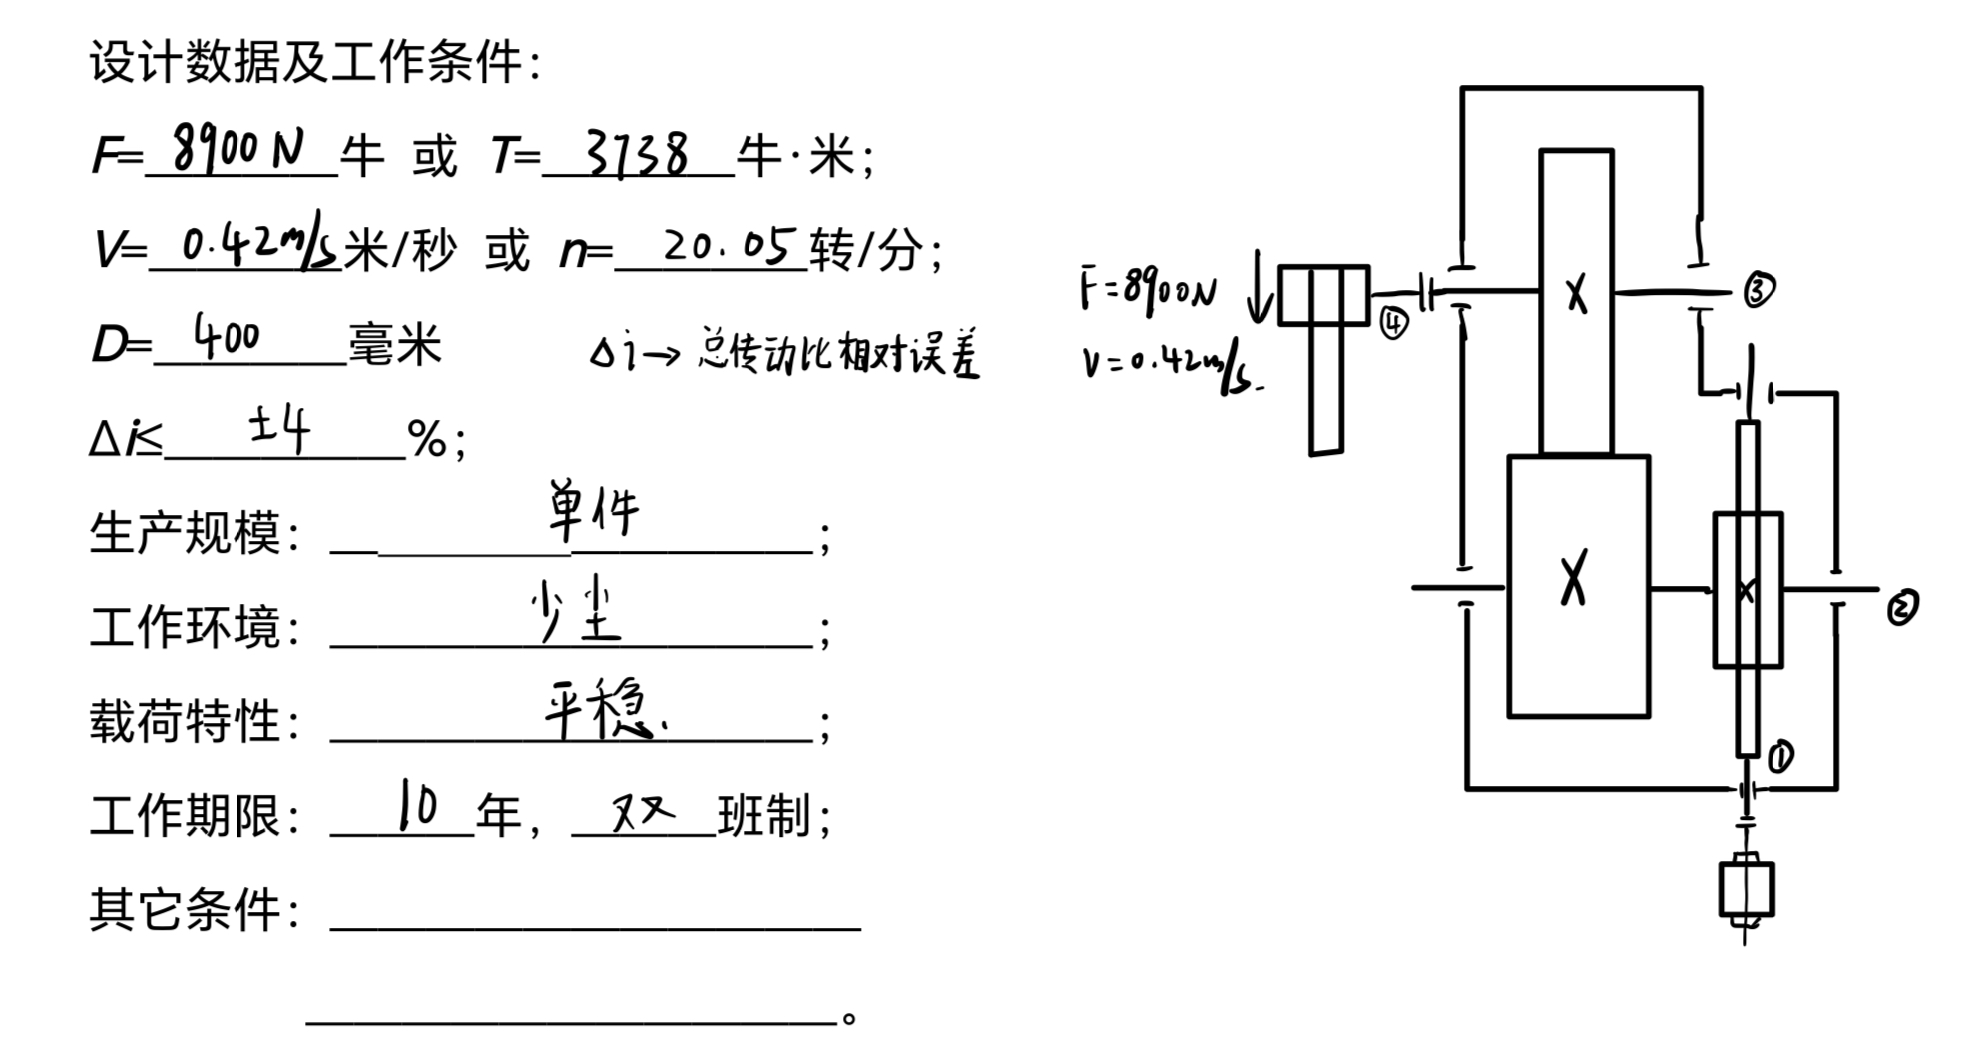 设计数据及工作条件：
F=8900 N牛 或 T=3738牛·米；
V=0.42m/s米/秒 或 n=20.05转/分；
D=400毫米
Δi→总传动比相对误差
Δi≤±4%；
生产规模：单件；
工作环境：少尘；
载荷特性：平稳.；
工作期限：10年，双班制；
其它条件：
。
F=8900N
V=0.42m/s.
④
③
②
①